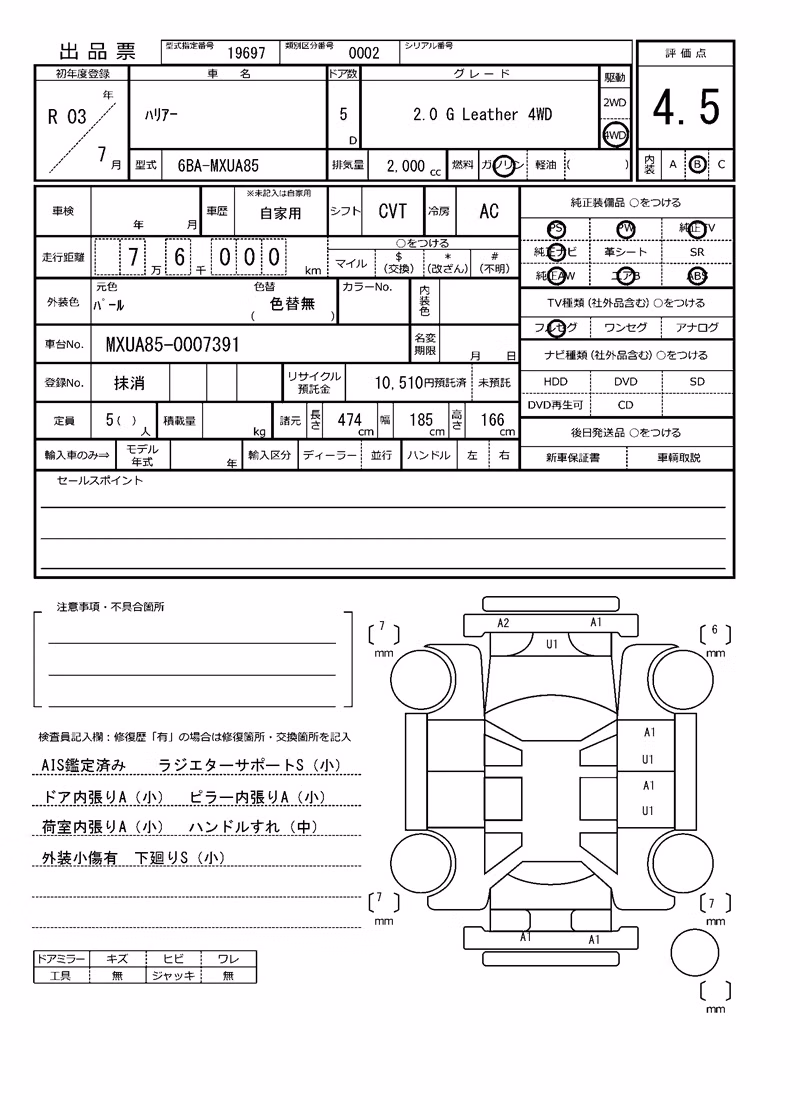 出品票
型式指定番号 19697 類別区分番号 0002 シリアル番号
評価点
4.5
内装 A B C
初年度登録 車 名 ドア数 グレード 駆動
R 03 年 7 月
ﾊﾘｱｰ 5 D 2.0 G Leather 4WD
2WD
4WD
型式 6BA-MXUA85 排気量 2,000 cc 燃料 ガソリン 軽油 ( )
車検 年 月 車歴 ※未記入は自家用 自家用 シフト CVT 冷房 AC
走行距離 7 万 6 千 0 0 0 km
○をつける
マイル $(交換) *(改ざん) #(不明)
外装色 元色 ﾊﾟｰﾙ 色替 ( 色替無 ) カラーNo. 内装色
車台No. MXUA85-0007391 名変期限 月 日
登録No. 抹消 リサイクル預託金 10,510円預託済 未預託
定員 5( ) 人 積載量 kg 諸元 長さ 474 cm 幅 185 cm 高さ 166 cm
輸入車のみ⇒ モデル年式 年 輸入区分 ディーラー 並行 ハンドル 左 右
純正装備品 ○をつける
PS PW 純正TV
純正ナビ 革シート SR
純正AW エアB ABS
TV種類(社外品含む) ○をつける
フルセグ ワンセグ アナログ
ナビ種類(社外品含む) ○をつける
HDD DVD SD
DVD再生可 CD
後日発送品 ○をつける
新車保証書 車輌取説
セールスポイント
注意事項・不具合箇所
検査員記入欄：修復歴「有」の場合は修復箇所・交換箇所を記入
AIS鑑定済み ラジエターサポートS（小）
ドア内張りA（小） ピラー内張りA（小）
荷室内張りA（小） ハンドルすれ（中）
外装小傷有 下廻りS（小）
ドアミラー キズ ヒビ ワレ
工具 無 ジャッキ 無
7 mm
A2 A1
U1
6 mm
A1
U1
A1
U1
7 mm
7 mm
A1 A1
mm